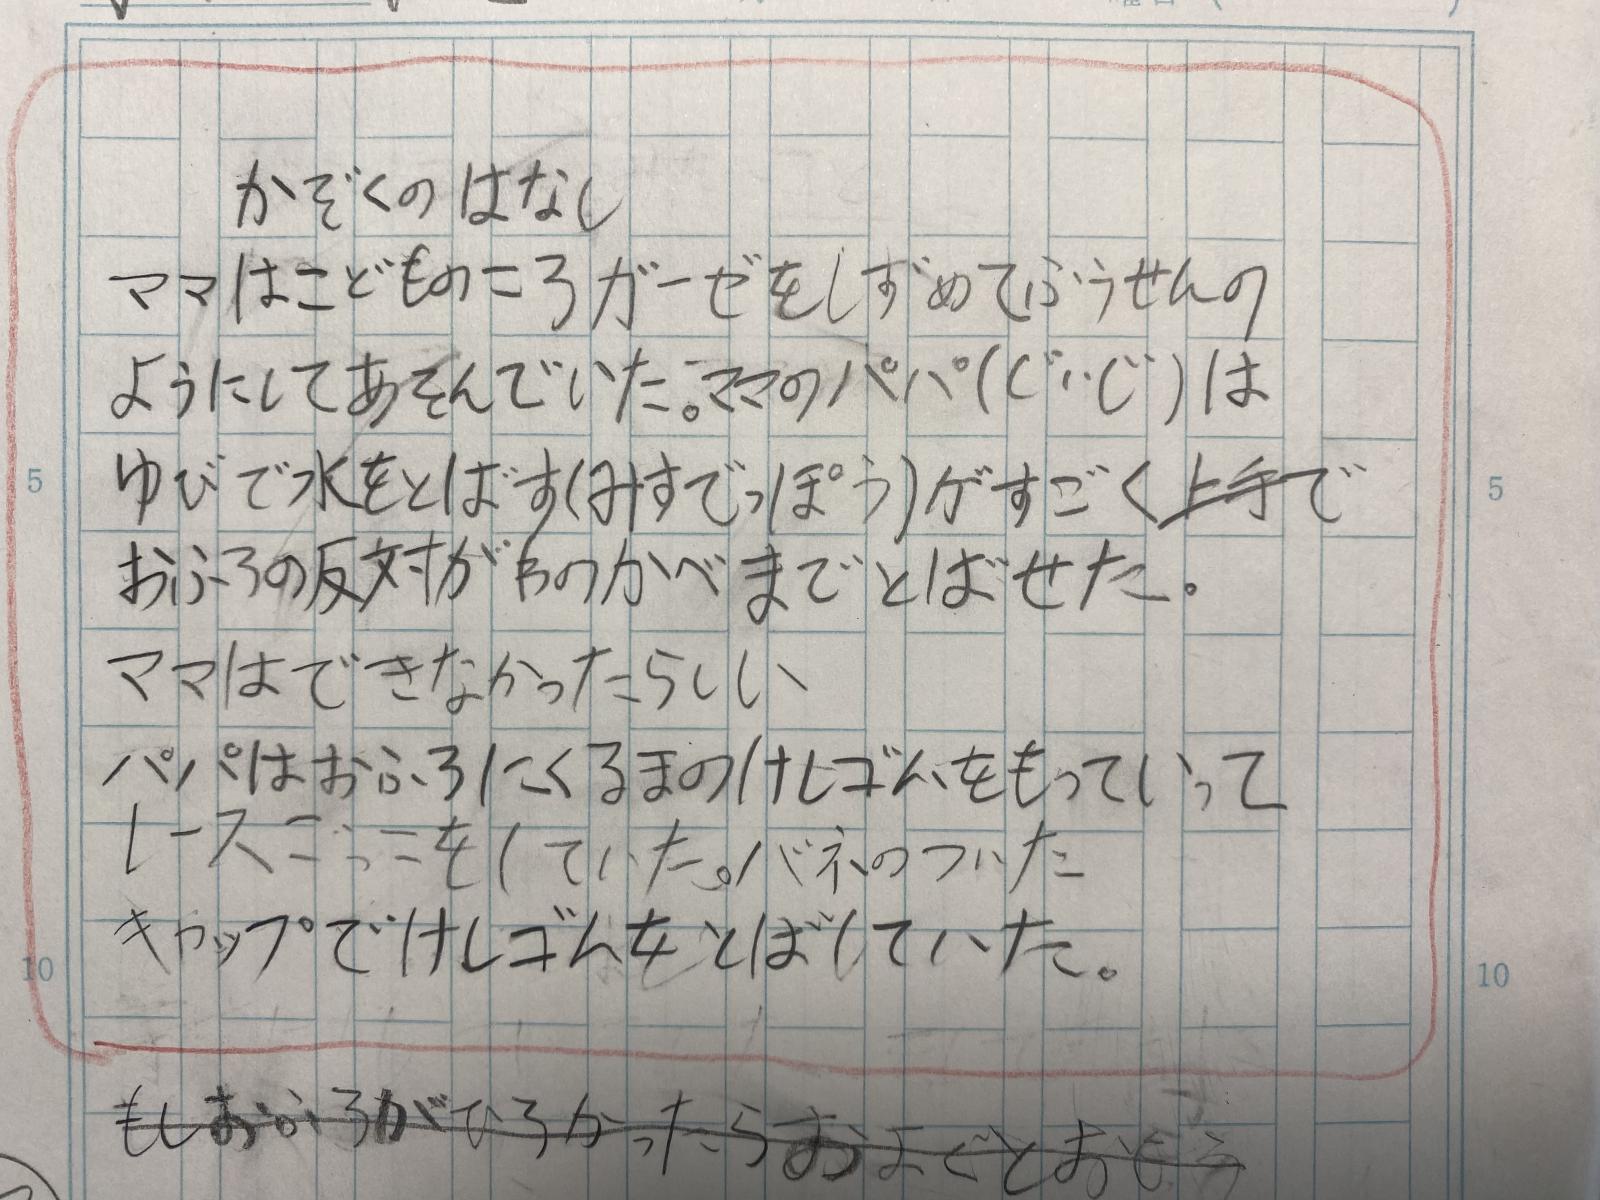 かぞくのはなし
ママはこどものころガーゼをしずめてふうせんの
ようにしてあそんでいた。ママのパパ(じいじ)は
ゆびで水をとばす(みずでっぽう)がすごく上手で
おふろの反対がわのかべまでとばせた。
ママはできなかったらしい
パパはおふろにくるまのけしゴムをもっていって
レースごっこをしていた。バネのついた
キャップでけしゴムをとばしていた。
もしおふろがひろかったらおよぐとおもう
5
5
10
10